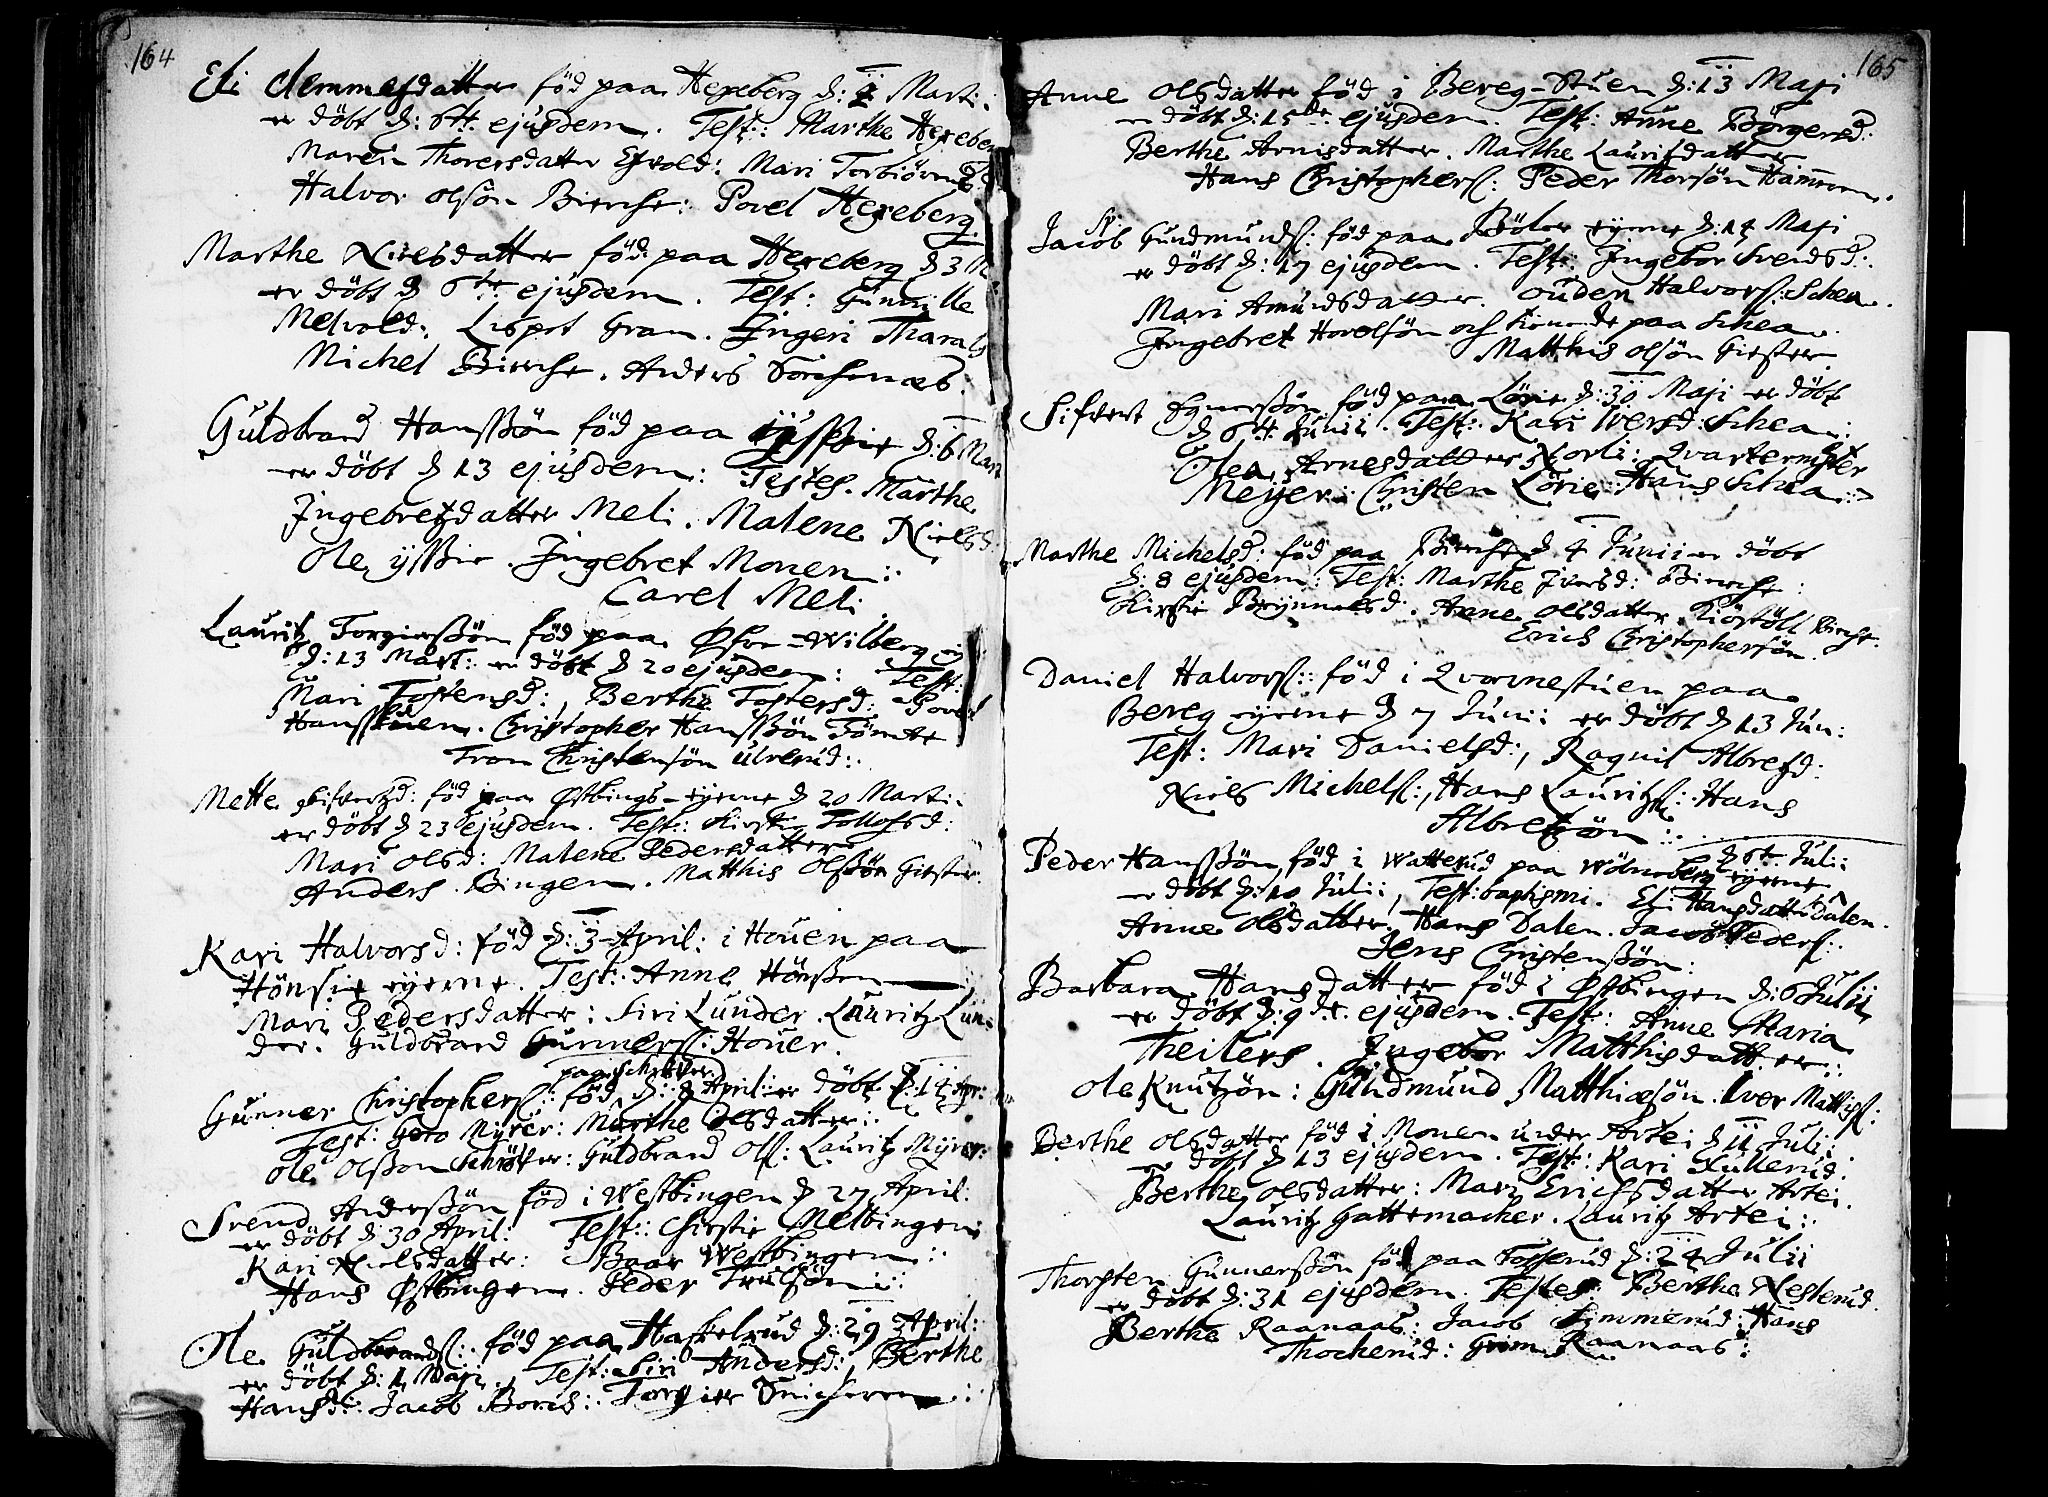 164
Eli Clemmesdatter föd paa Hexeberg d: 2 Marti:
er döbt d: 6te ejusdem. Test: Marthe Hexeberg
Maren Thorersdatter Esvold: Mari Torbiörns
Halvor olsön Bierche: Povel Hexeberg
Marthe Nielsdatter föd paa Hexeberg d 3
er döbt d 6te ejusdem. Test: Gunnille
Melvold: Lispet Gram. Jngeri Tharals
Michel Bierche. Anders
Guldbrand Hanssön föd paa ÿssie d: 6 Mart
er döbt d 13 ejusdem: Testes. Marthe
Jngebretzdatter Meli. Malene Nielsd
Ole ÿssie. Jngebret Monen:
Carel Meli
Lauritz Torgierssön föd paa Øfre-Wilberg
d: 13 Mart: er döbt d 20 ejusdem: Test:
Mari Tostensd:, Berthe Tostersd: Povel
Hansstuen. Christopher Hanssön Tömte
Tron Christensön ulverud:
Mette Sifvertzd: föd paa Østbings-eÿerne d 20 Marti:
er döbt d 23 ejusdem. Test: Kirstie Tollofsd:
Mari olsd: Malene Pedersdatter
Anders Bingen. Matthis Olssön Giester
Kari Halvorsd: föd d: 3 April: i Houen paa
Hönsie eÿerne. Test: Anne Hönssen
Mari Pedersdatter: Siri Lunder. Lauritz Lun-
der. Guldbrand Gunners: Houer.
paa Schriver
Gunner Christophers: föd d: 8 April: er döbt d: 14 Apr:
Test: Goro Mÿrer: Marthe Olsdatter:
Ole Olsson Schriver: Guldbrand Ols: Lauritz Mÿrer:
Svend Anderssön föd i Westbingen d 27 April:
er döbt d: 30 April: Test: Chirstie Melbingen
Kari Nielsdatter: Boar Westbingen:
Hans Østbingen. Peder Trulsön:
Ole Guldbrands: föd paa Haskelrud d: 29 April:
er döbt d: 1 Maji. Test: Siri Andersd:, Berthe
Hansd: Jacob Borch: Torgier
165
Anne Olsdatter föd i Bereg-Stuen d: 13 Maji
er döbt d: 15de ejusdem. Test: Anne Börgersd:
Berthe Arnisdatter. Marthe Lauritzdatter
Hans Christophers: Peder Thorsön Hammeren.
Jacob Gundmunds: föd paa Böler eÿerne d: 14 Maji
er döbt d: 17 ejusdem. Test: Jngebor Svendsd:
Mari Amundsdatter. Ouden Halvors: Schea.
Jngebret Hovelsön och paa Schea.
Matthis olsön Giester
Sifvert föd paa Lörie d: 30 Maji er döbt
d 6te Junii. Test: Kari Iversd: Schea:
Olea Arnesdatter Norli: Qvartermester
Meÿer: Christen Lörie: Hans Schea:
Marthe Michelsd: föd paa Bierche d 4 Junii er döbt
d: 8 ejusdem: Test: Marthe Jversd: Bierche:
Kirstie Brÿnnelsd. Anne olsdatter Kiöstöll Bierche.
Erich Christophersön.
Daniel Halvors: föd i Qvornestuen paa
Bereg eÿerne d 7 Junii er döbt d 13 Jun:
Test: Mari Danielsd:, Ragnil Albretzd:
Niels Michels:, Hans Lauritzs: Hans
Albretzön:
d 6te Julii
Peder Hanssön föd i Watterud paa Wölneberg eÿerne
er döbt d: 10 Julii, Test: baptismi. Eli Hansdatter Dalen.
Anne Olsdatter, Hans Dalen. Jacob Peders:
Jens Christenssön:
Barbara Hansdatter föd i Østbingen d: 6 Julii
er döbt d: 9de ejusdem. Test: Anne Maria
Theilers. Jngebor Matthisdatter:
Ole Knutzön: Gundmund Matthiæsön. Iver Mattiss:
Berthe olsdatter föd i Monen under Artei d 11 Julii
er döbt d 13 ejusdem. Test: Kari Kullerud:
Berthe olsdatter: Mari Erichsdatter Artei.
Lauritz Gattemacher. Lauritz Artei:
Thorsten Gunnerssön föd paa Tosserud d: 24 Julii
er döbt d: 31 ejusdem. Testes: Berthe Nesterud
Berthe Raanaas: Jacob Timmerud: Hans
Thocherud: Grim Raanaas: